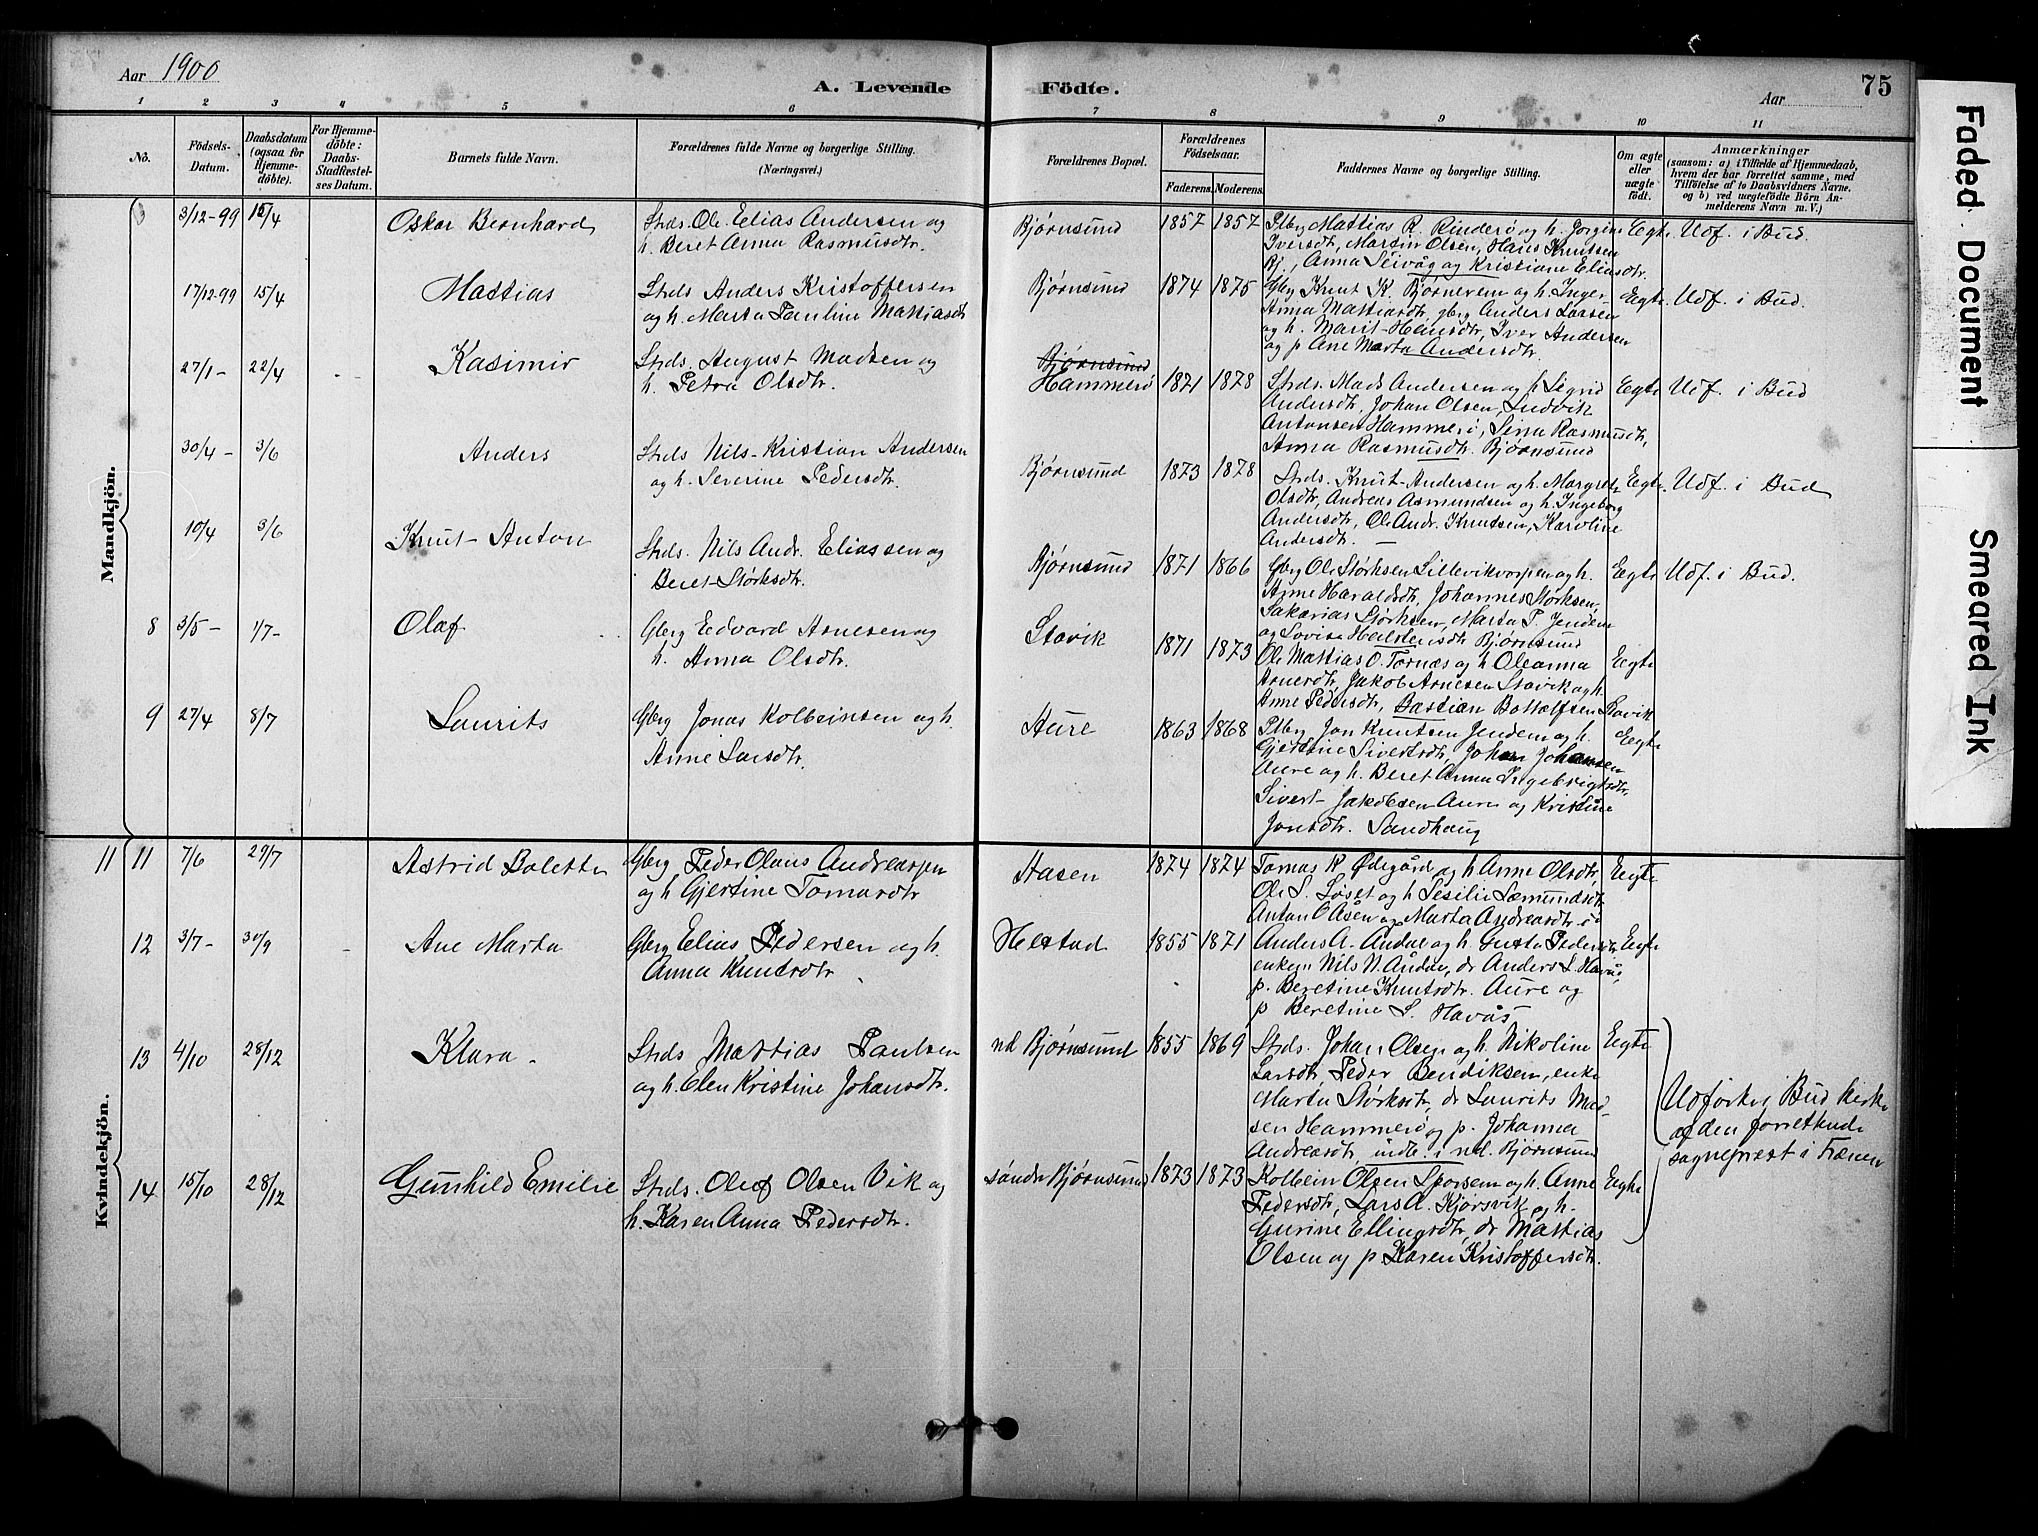 Aar 1900
A. Levende Födte.
Aar
75
1 2 3 4 5 6 7 8 9 10 11
No.
Födsels-Datum.
Daabsdatum (ogsaa for Hjemme-döbte).
For Hjemme-döbte: Daabs-Stadfæstel-ses Datum.
Barnets fulde Navn.
Forældrenes fulde Navne og borgerlige Stilling. (Næringsvei.)
Forældrenes Bopæl.
Forældrenes Födselsaar.
Faderens. Moderens.
Faddernes Navne og borgerlige Stilling.
Om ægte eller uægte födt.
Anmærkninger
(saasom: a) i Tilfælde af Hjemmedaab,
hvem der har forrettet samme, med
Tilföielse af to Daabsvidners Navne.
og b) ved uægtefödte Börn An-
melderens Navn m. V.)
Mandkjön.
3/12-99 15/4 Oskar Bernhard
Strds. Ole Elias Andersen og
h. Beret Anna Rasmusdtr.
Bjørnsund 1857 1857
Plbg Mattias R. Rinderø og h. Jorgine
Iversdtr, Martin Olsen, Hans Knutsen
Bj., Anna Seivåg og Kristiane Eliasdtr.
Egte Udf. i Bud.
17/12-99 15/4 Mattias
Strds Anders Kristoffersen
og h. Marta Pauline Mattiasdtr
Bjørnsund 1874 1875
Gbrg Knut K. Bjørnerem og h. Inger-
Anna Mattiasdtr, gbrg Anders Larsen
og h. Marit Hansdtr, Iver Andersen
og p Ane Marta Andersdtr.
Egte Udf. i Bud.
27/1- 22/4 Kasimir
Strds. August Madsen og
h. Petra Olsdtr.
Bjørnsund
Hammerø 1871 1878
Strds. Mads Andersen og h Sigrid
Andersdtr, Johan Olsen, Ludvik
Antonsen Hammerø, Sina Rasmusdtr,
Anna Rasmusdtr. Bjørnsund
Egte Udf. i Bud
30/4- 3/6 Anders
Strds Nils-Kristian Andersen
og h. Severine Pedersdtr.
Bjørnsund 1873 1878
Strds. Knut Andersen og h. Margrete
Olsdtr, Andreas Asmundsen og h Ingeborg
Andersdtr, Ole Andr. Knutsen, Karoline
Andersdtr.
Egte. Udf. i Bud
10/4 3/6 Knut Anton
Strds. Nils Andr. Eliassen og
Beret Størksdtr.
Bjørnsund 1871 1866
Gbrg Ole Størksen Lillevikvorpen og h.
Anne Haraldsdtr, Johannes Størksen,
Sakarias Størksen, Marta P. Jendem
og Lovise Halstensdtr Bjørnsund
Egte Udf. i Bud.
8 3/5- 1/7- Olaf
Gbrg Edvard Arnesen og
h. Anna Olsdtr.
Stavik 1871 1873
Ole Mattias O. Tornæs og h Oleanna
Arnesdtr, Jakob Arnesen Stavik og h.
Anne Pedersdtr, Bastian Bottolfsen Stavik
Egte
9 27/4 8/7 Laurits
Gbrg Jonas Kolbeinsen og h.
Anne Larsdtr.
Aure 1863 1868
Plbrg Jon Knutsen Jendem og h.
Gjertine Sivertsdtr, Johan Johansen
Aure og h. Beret Anna Ingebrigtsdtr,
Sivert Jakobsen Aure og Kristine
Jonsdtr. Sandhaug
Egte
Kvindekjön.
11 11 7/6 29/7 Astrid Bolette
Gbrg Peder Olaus Andreassen
og h Gjertine Tomasdtr
Hasen 1874 1874
Tomas K Ødegård og h Anne Olsdtr,
Ole S. Løset og h Sesilie Sæmundsdtr
Anton O Åsen og Marta Andreasdtr
Egte
12 3/7- 30/9 Ane Marta
Gbrg Elias Pedersen og h.
Anna Knutsdtr.
Helstad 1855 1871
Anders A. Åndal og h. Gusta Pedersdtr,
enkem Nils N. Åndal, dr Anders L. Havås,
p. Beretine Knutsdtr. Aure og
p Beretine S. Havås
Egte
13 4/10 28/12 Klara
Strds Mattias Paulsen
og h. Elen Kristine Johansdtr.
nd Bjørnsund 1855 1869
Strds. Johan Olsen og h. Nikoline
Larsdtr, Peder Bendiksen, enke
Marta Størksdtr, dr Laurits Mad-
sen Hammerø og p. Johanna
Andreasdtr, indb. i nd. Bjørnsund
Egte
Udført i Bud kirke
af den forrettende
sogneprest i Frænen
14 15/10 28/12 Gunhild Emilie
Strds. Olaf Olsen Vik og
h. Karen Anna Pedersdtr.
søndr Bjørnsund 1873 1873
Kolbein Olsen Sporsem og h. Anne
Pedersdtr, Lars A. Kjørsvik og h.
Gurine Ellingsdtr, dr Mattias
Olsen og p Karen Kristoffersdtr.
Egte
Faded Document
Smeared Ink